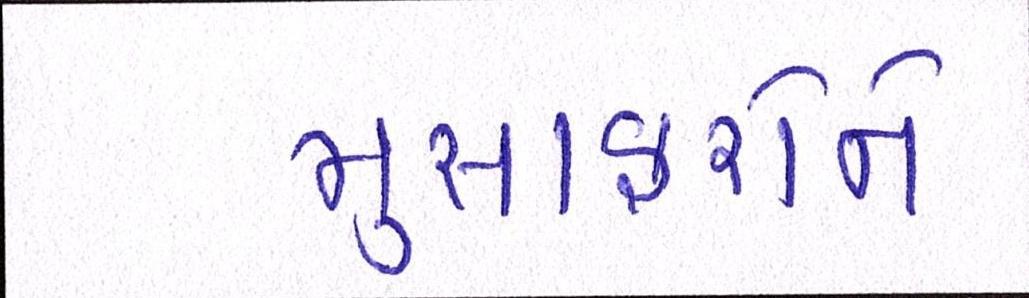 મુસાફરોને